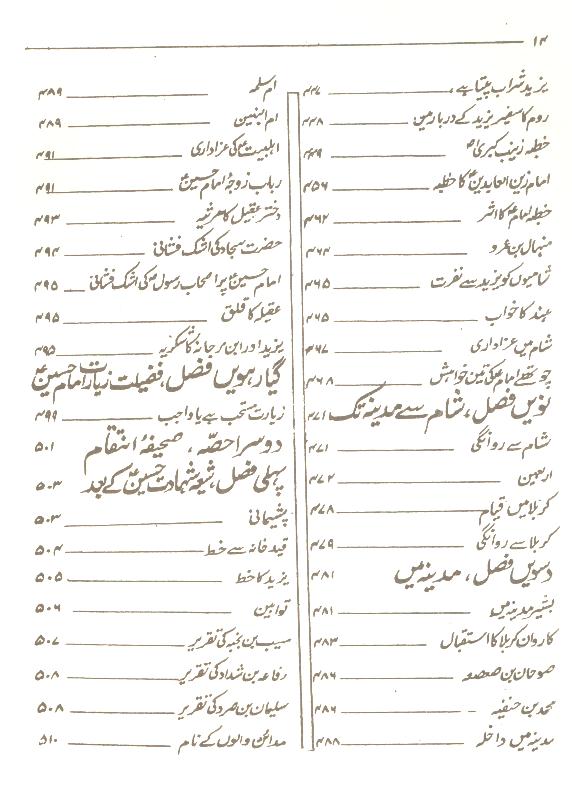 ۱۴
یزید شراب پیتا ہے، ۴۴۷
روم کا سفیر یزید کے دربار میں ۴۴۸
خطبہ زینب کبریٰ ؑ ۴۴۹
امام زین العابدین ؑ کا خطبہ ۴۵۶
خطبہ امام ؑ کا اثر ۴۶۲
منہال بن عمرو ۴۶۴
شامیوں کو یزید سے نفرت ۴۶۵
ہند کا خواب ۴۶۵
شام میں عزاداری ۴۶۷
چوتھے امام ؑ کی تین خواہش ۴۶۸
نویں فصل، شام سے مدینہ تک ۴۷۱
شام سے روانگی ۴۷۱
اربعین ۴۷۲
کربلا میں قیام ۴۷۸
کربلا سے روانگی ۴۷۹
دسویں فصل، مدینہ میں ۴۸۱
بشیر مدینہ میں ۴۸۱
کاروان کربلا کا استقبال ۴۸۳
صوحان بن صعصعہ ۴۸۶
محمد بن حنفیہ ۴۸۶
مدینہ میں داخلہ ۴۸۸
ام سلمہ ۴۸۹
ام البنین ۴۸۹
اہلبیت ؑ کی عزاداری ۴۹۱
رباب زوجۂ امام حسین ؑ ۴۹۱
دختر عقیل کا مرثیہ ۴۹۳
حضرت سجاد کی اشک فشانی ۴۹۴
امام حسین ؑ پر اصحاب رسول ؐ کی اشک فشانی ۴۹۵
عقیلہ کا قلق ۴۹۵
یزید اور ابن مرجانہ کا شکریہ ۴۹۵
گیارہویں فصل، فضیلت زیارت امام حسین ؑ
زیارت مستحب ہے یا واجب ۴۹۹
دوسرا حصّہ، صحیفۂ انتقام ۵۰۱
پہلی فصل، شیعہ شہادت حسین ؑ کے بعد ۵۰۳
پشیمانی ۵۰۳
قید خانہ سے خط ۵۰۴
یزید کا خط ۵۰۵
توابین ۵۰۶
مسیب بن نجبہ کی تقریر ۵۰۷
رفاعہ بن شداد کی تقریر ۵۰۸
سلیمان بن صرد کی تقریر ۵۰۸
مدائن والوں کے نام ۵۱۰